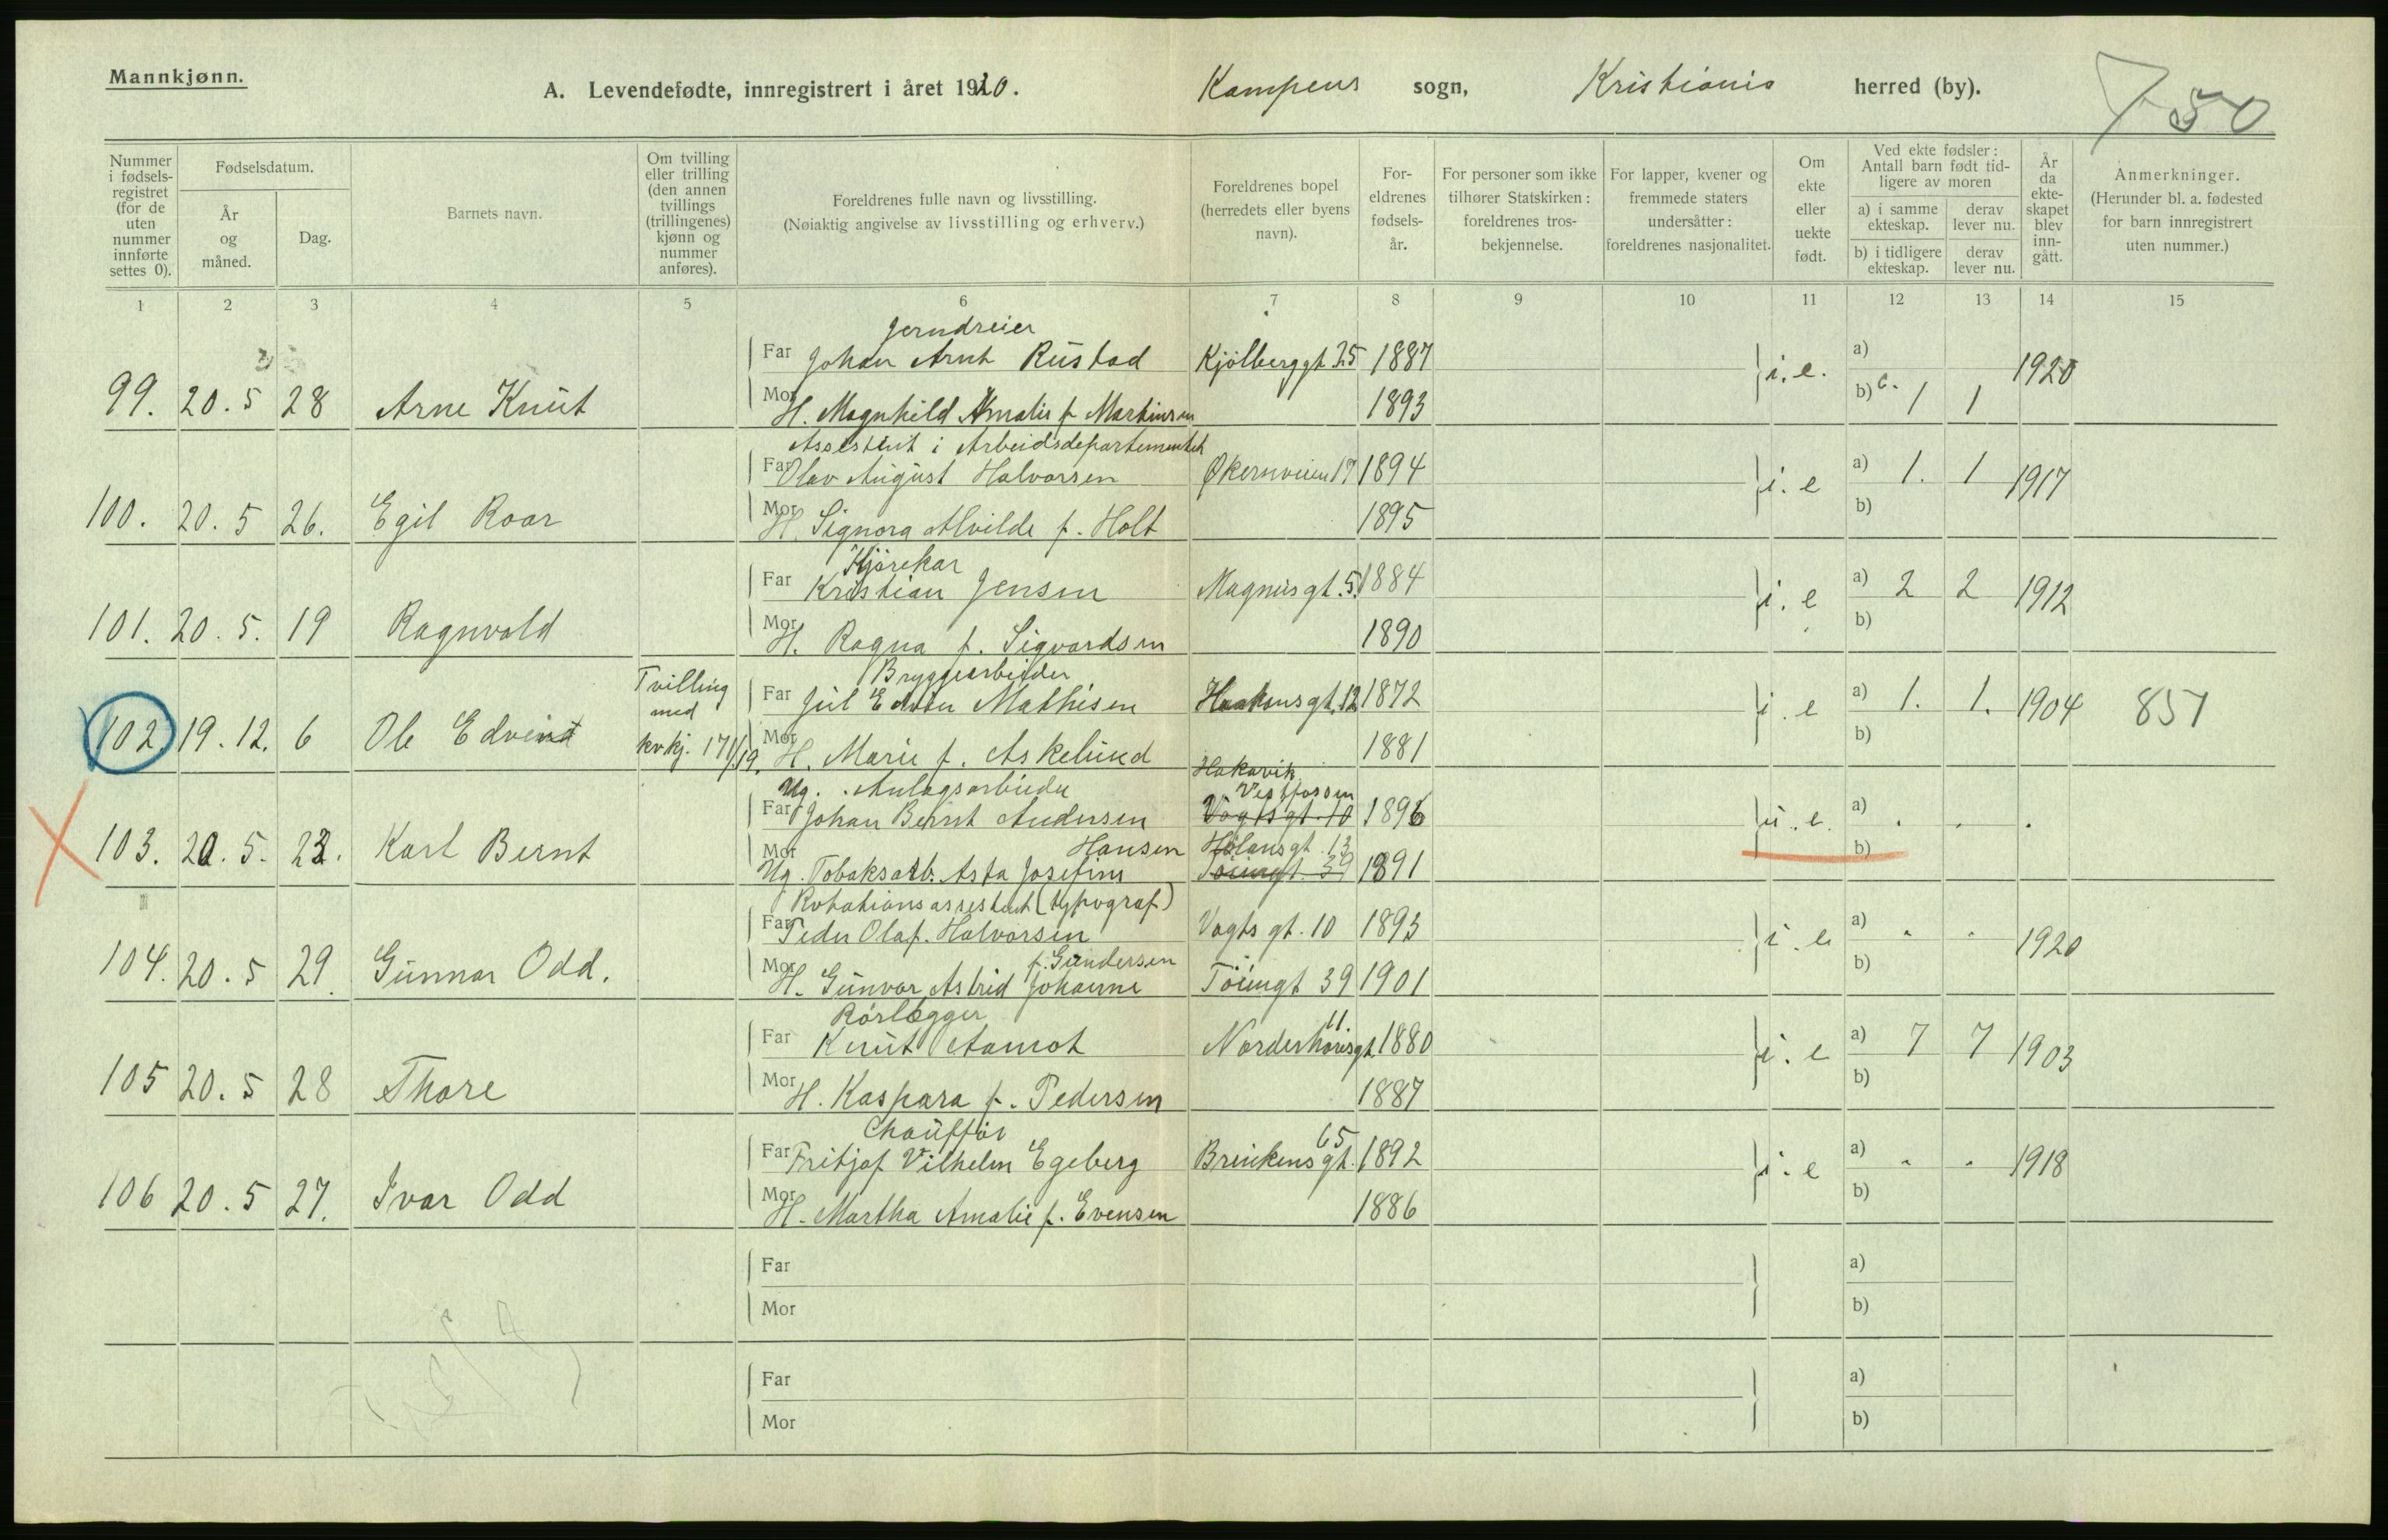 Mannkjønn.
A. Levendefødte, innregistrert i året 1920. Kampens sogn, Kristiania herred (by).
750
Nummer i fødsels-registret (for de uten nummer innførte settes 0).
Fødselsdatum.
År og måned.
Dag.
Barnets navn.
Om tvilling eller trilling (den annen tvillings (trillingenes) kjønn og nummer anføres).
Foreldrenes fulle navn og livsstilling.
(Nøiaktig angivelse av livsstilling og erhverv.)
Foreldrenes bopel (herredets eller byens navn).
For-eldrenes fødsels-år.
For personer som ikke tilhører Statskirken: foreldrenes tros-bekjennelse.
For lapper, kvener og fremmede staters undersåtter: foreldrenes nasjonalitet.
Om ekte eller uekte født.
Ved ekte fødsler: Antall barn født tid-ligere av moren
a) i samme ekteskap. derav lever nu.
b) i tidligere ekteskap. derav lever nu.
År da ekte-skapet blev inn-gått.
Anmerkninger.
(Herunder bl. a. fødested for barn innregistrert uten nummer.)
1 2 3 4 5 6 7 8 9 10 11 12 13 14 15
Jerndreier
Far Johan Arnt Rustad Kjølberggt 25 1887 a)
99. 20. 5 28 Arne Knut i. e. 1920
Mor H. Magnhild Amalie f. Martinsen 1893 b) 1 1
Assistent i Arbeidsdepartementet
Far Olav August Halvorsen Økernveien 17 1894 a) 1. 1
100. 20. 5 26. Egil Roar i. e 1917
Mor H. Signora Alvilde f. Holt 1895 b)
Kjørekar
Far Kristian Jensen Magnusgt. 5. 1884 a) 2 2
101. 20. 5. 19 Ragnvald i. e 1912
Mor H. Ragna f. Sigvardsen 1890 b)
Bryggearbeider
Far Jul Edvin Mathisen Haakonsgt. 12 1872 a) 1. 1.
102 19. 12. 6 Ole Edvind Tvilling med kvkj. 171/19. i. e 1904 857
Mor H. Marie f. Askelund 1881 b)
Ug. Anlagsarbeider Hakavik Vestfossen
Far Johan Bernt Andersen Vogtsgt. 10 1896 a) . . .
103. 20. 5. 23. Karl Bernt u. e.
Hansen Hølandsgt. 13
Mor Ug. Tobaksarb. Asta Josefine Tøiengt. 39 1891 b)
Rotationsassistent (typograf)
Far Peder Olaf. Halvorsen Vogts gt. 10 1893 a) . .
104. 20. 5 29. Gunnar Odd. i. e 1920
f. Gundersen
Mor H. Gunvor Astrid Johanne Tøiengt 39 1901 b)
Rørlægger 11
Far Knut Aamot Norderhovsgt 1880 a) 7 7
105 20. 5 28 Thore i. e 1903
Mor H. Kaspara f. Pedersen 1887 b)
Chauffør 65
Far Fritjof Vilhelm Egeberg Brinkens gt. 1892 a) . .
106 20. 5 27. Ivar Odd i. e 1918
Mor H. Martha Amalie f. Evensen 1886 b)
Far a)
Mor b)
Far a)
Mor b)